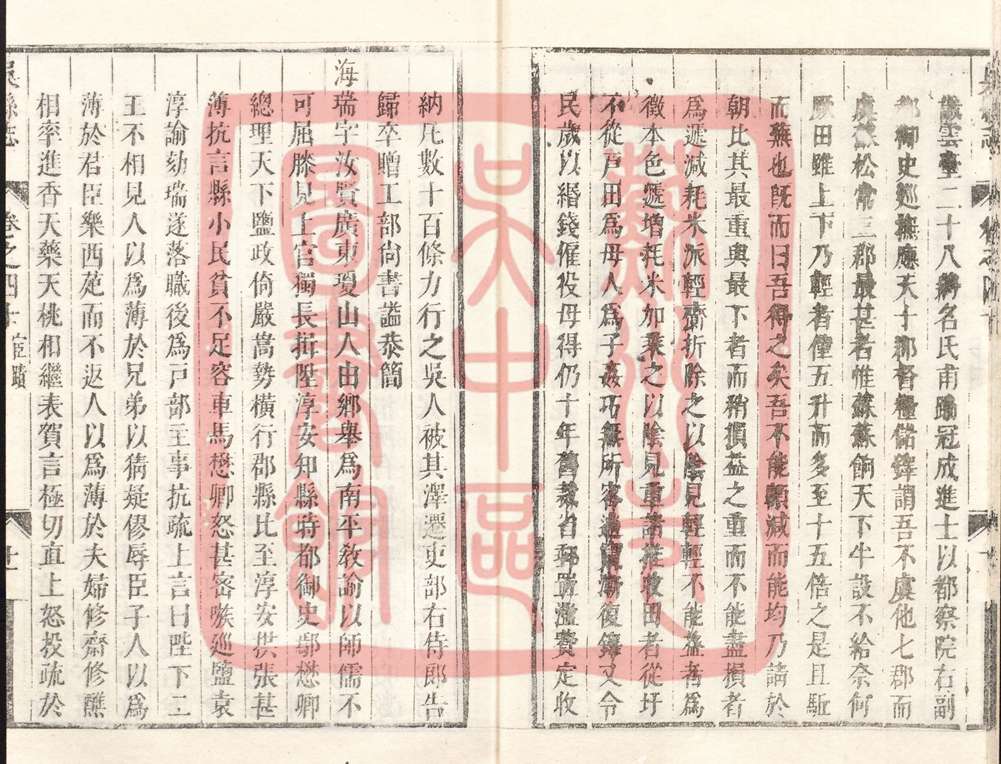 二十八
都御史巡撫應天十郡督糧儲鐸謂吾不虞他七郡而
虞蘇松常三郡最甚者惟蘇蘇餉天下半設不給奈何
厥田雖上下乃輕者僅五升而多至十五倍之是且駈
而蕪也旣而曰吾得之矣吾不能頓減而能均乃請於
朝比其最重與最下者而稍損益之重而不能盡損者
爲遞減耗米派輕齎折除之以陰見輕輕不能益者爲
徵本色遞增耗米加乘之以陰見重諸推收田者從圩
不從戶田爲母人爲子姦巧無所容
民歲以緡錢僱役毋得仍十年舊
濫費定收
納凡數十百條力行之吳人被其澤遷吏部右侍郎告
歸卒贈工部尙書諡恭簡
海瑞字汝賢廣東瓊山人由鄉舉爲南平敎諭以師儒不
可屈膝見上官獨長揖陞淳安知縣時都御史鄢懋卿
總理天下鹽政倚嚴嵩勢橫行郡縣比至淳安供張甚
薄抗言縣小民貧不足容車馬懋卿怒甚密嗾巡鹽袁
淳論劾瑞遂落職後爲戶部主事抗疏上言曰陛下二
王不相見人以爲薄於兄弟以猜疑僇辱臣子人以爲
薄於君臣樂西苑而不返人以爲薄於夫婦修齋修醮
相率進香天藥天桃相繼表賀言極切直上怒投疏於
吳縣志
卷之四十
宦蹟